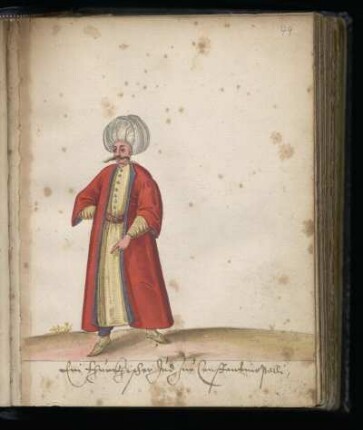 44
ein thürckischer Jud zue Constantinopoli,